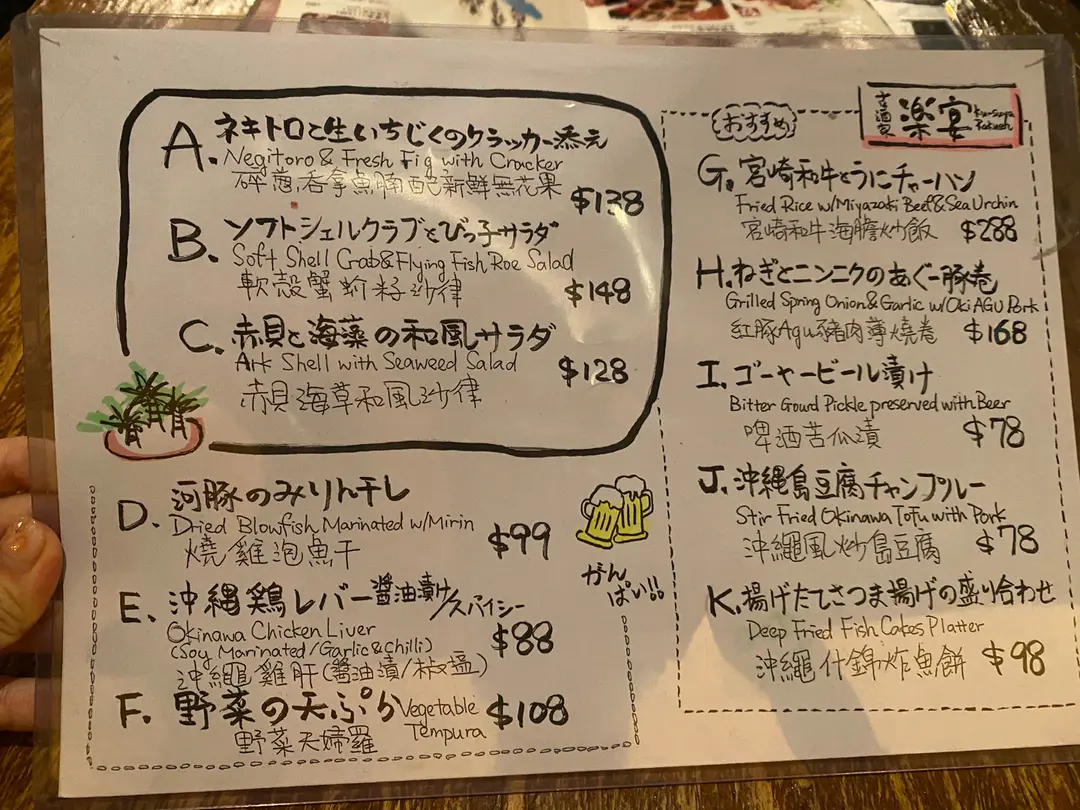 A. ネギトロと生いちじくのクラッカー添え
Negitoro & Fresh Fig with Cracker
碎蔥吞拿魚腩配新鮮無花果 $138
B. ソフトシェルクラブとびっ子サラダ
Soft Shell Crab & Flying Fish Roe Salad
軟殼蟹蚧籽沙律 $148
C. 赤貝と海藻の和風サラダ
Ark Shell with Seaweed Salad
赤貝海草和風沙律 $128
D. 河豚のみりん干し
Dried Blowfish Marinated w/Mirin
燒雞泡魚干 $99
E. 沖縄鶏レバー醤油漬け/スパイシー
Okinawa Chicken Liver
(Soy Marinated/Garlic & Chilli) $88
沖繩雞肝(醬油漬/椒塩)
F. 野菜の天ぷら Vegetable Tempura $108
野菜天婦羅
かんぱい!!
古酒家 楽宴 Ku-suya Rakuen
おすすめ
G. 宮崎和牛とうにチャーハン
Fried Rice w/Miyazaki Beef & Sea Urchin
宮崎和牛海膽炒飯 $288
H. ねぎとニンニクのあぐー豚巻
Grilled Spring Onion & Garlic w/Oki AGU Pork
紅豚Agu豬肉薄燒卷 $168
I. ゴーヤービール漬け
Bitter Gourd Pickle preserved with Beer
啤酒苦瓜漬 $78
J. 沖縄島豆腐チャンプルー
Stir Fried Okinawa Tofu with Pork
沖繩風炒島豆腐 $78
K. 揚げたてさつま揚げの盛り合わせ
Deep Fried Fish Cakes Platter
沖繩什錦炸魚餅 $98